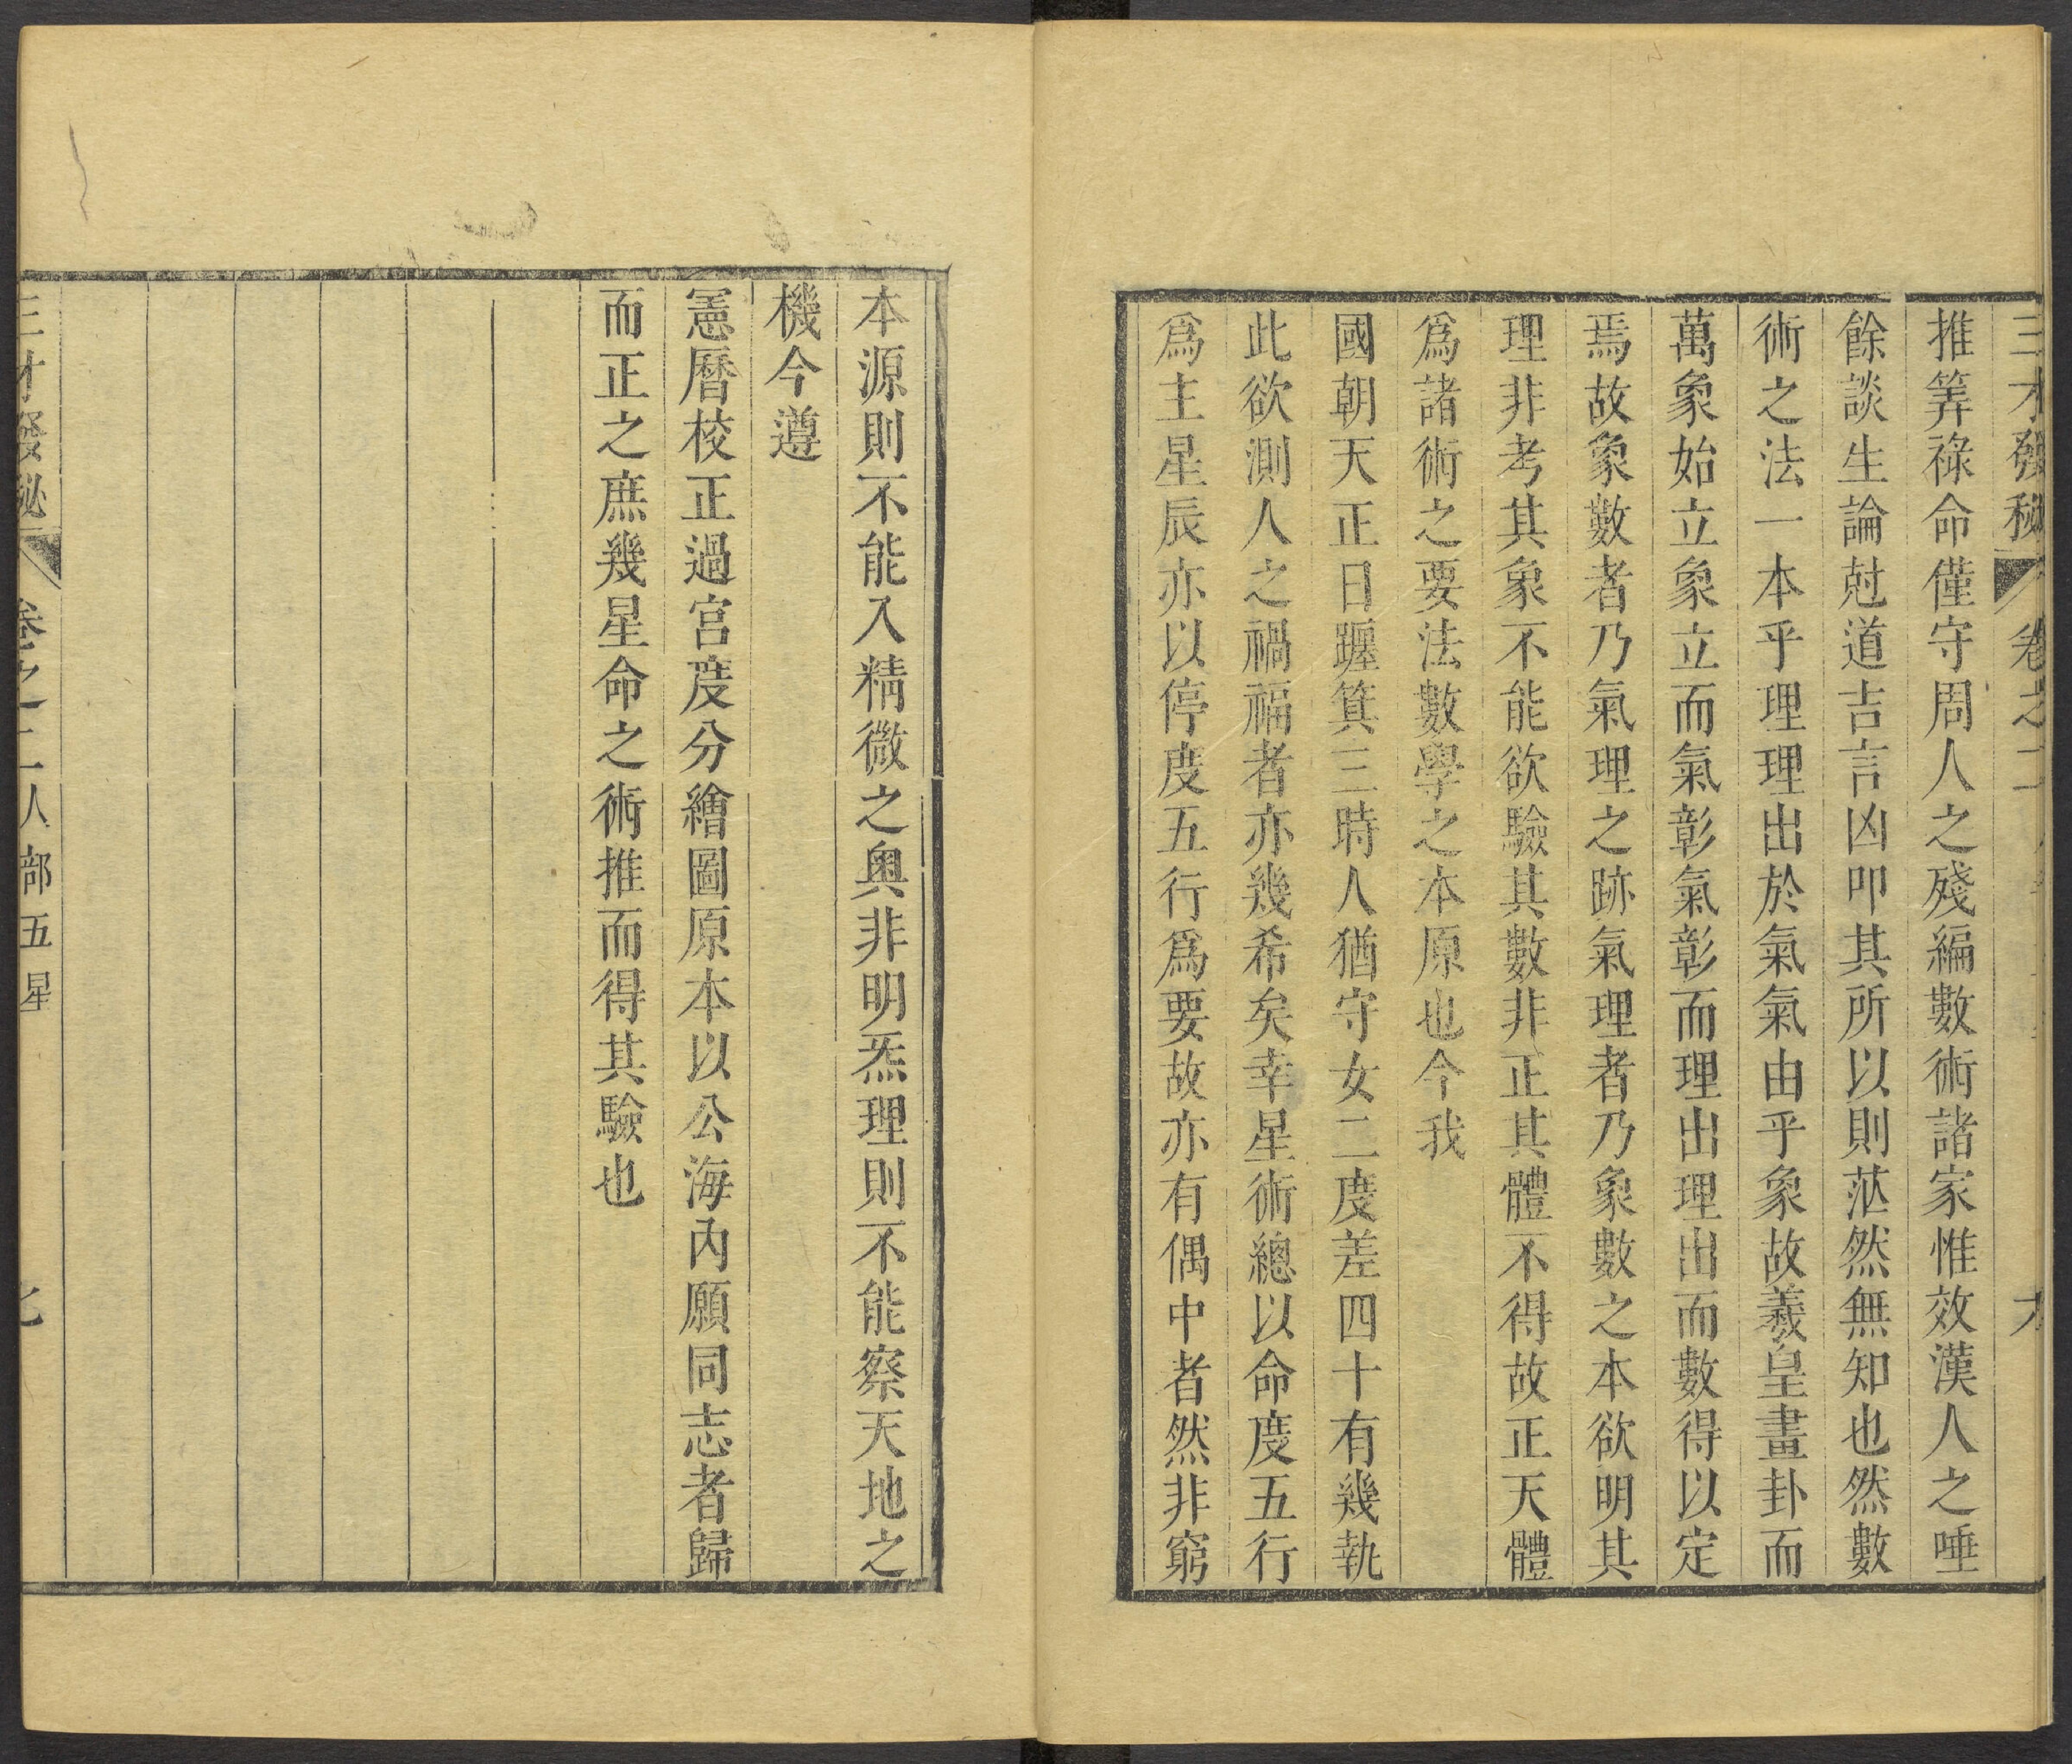 三才發秘 卷之二
推筭祿命僅守周人之殘編數術諸家惟效漢人之唾
餘談生論尅道吉言凶叩其所以則茫然無知也然數
術之法一本乎理理出於氣氣由乎象故羲皇畫卦而
萬象始立象立而氣彰氣彰而理出理出而數得以定
焉故象數者乃氣理之跡氣理者乃象數之本欲明其
理非考其象不能欲驗其數非正其體不得故正天體
爲諸術之要法數學之本原也今我
國朝天正日躔箕三時人猶守女二度差四十有幾執
此欲測人之禍福者亦幾希矣幸星術總以命度五行
爲主星辰亦以停度五行爲要故亦有偶中者然非窮
本源則不能入精微之奧非明炁理則不能察天地之
機今遵
憲曆校正過宮度分繪圖原本以公海內願同志者歸
而正之庶幾星命之術推而得其驗也
三才發秘 卷之二人部五星